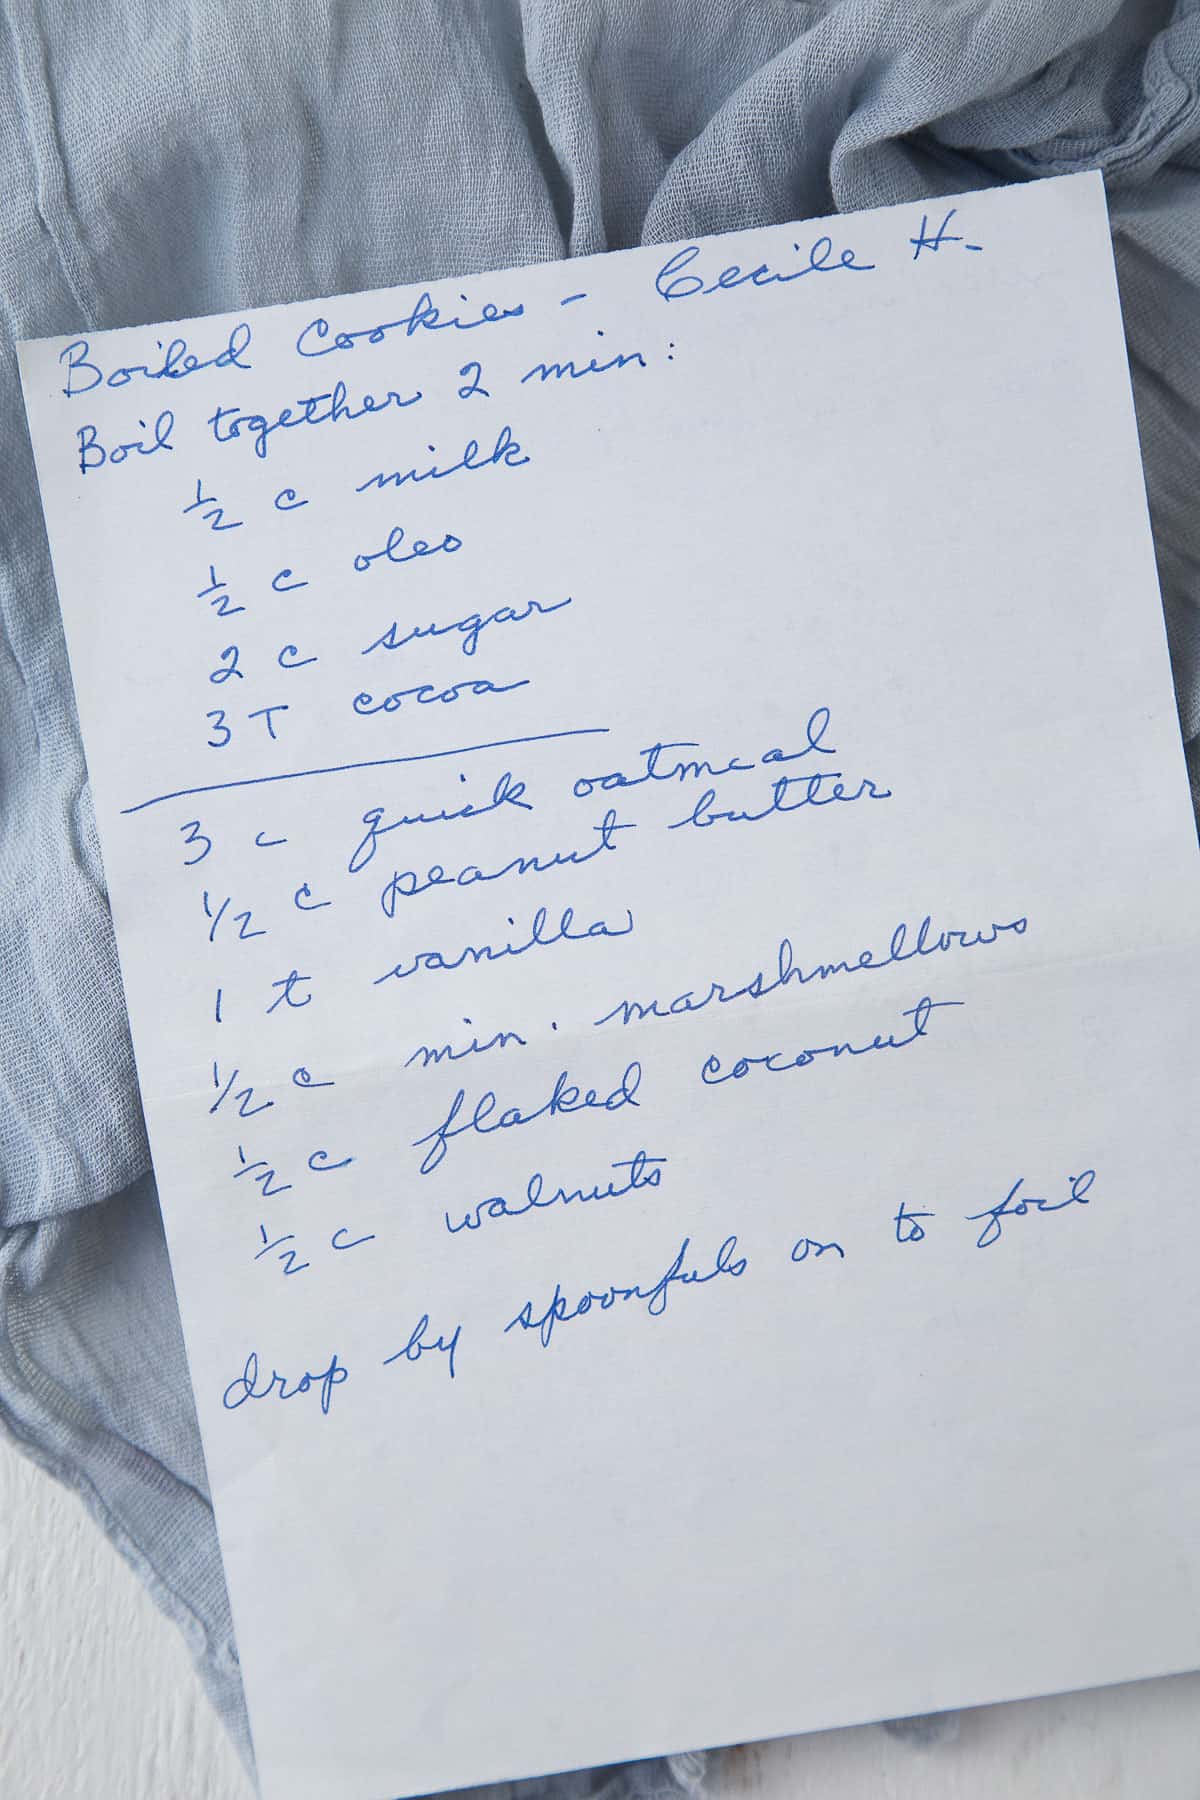 Boiled Cookies - Cecile H.
Boil together 2 min:
1/2 c milk
1/2 c oleo
2 c sugar
3 T cocoa
3 c quick oatmeal
1/2 c peanut butter
1 t vanilla
1/2 c min. marshmellows
1/2 c flaked coconut
1/2 c walnuts
drop by spoonfuls on to foil